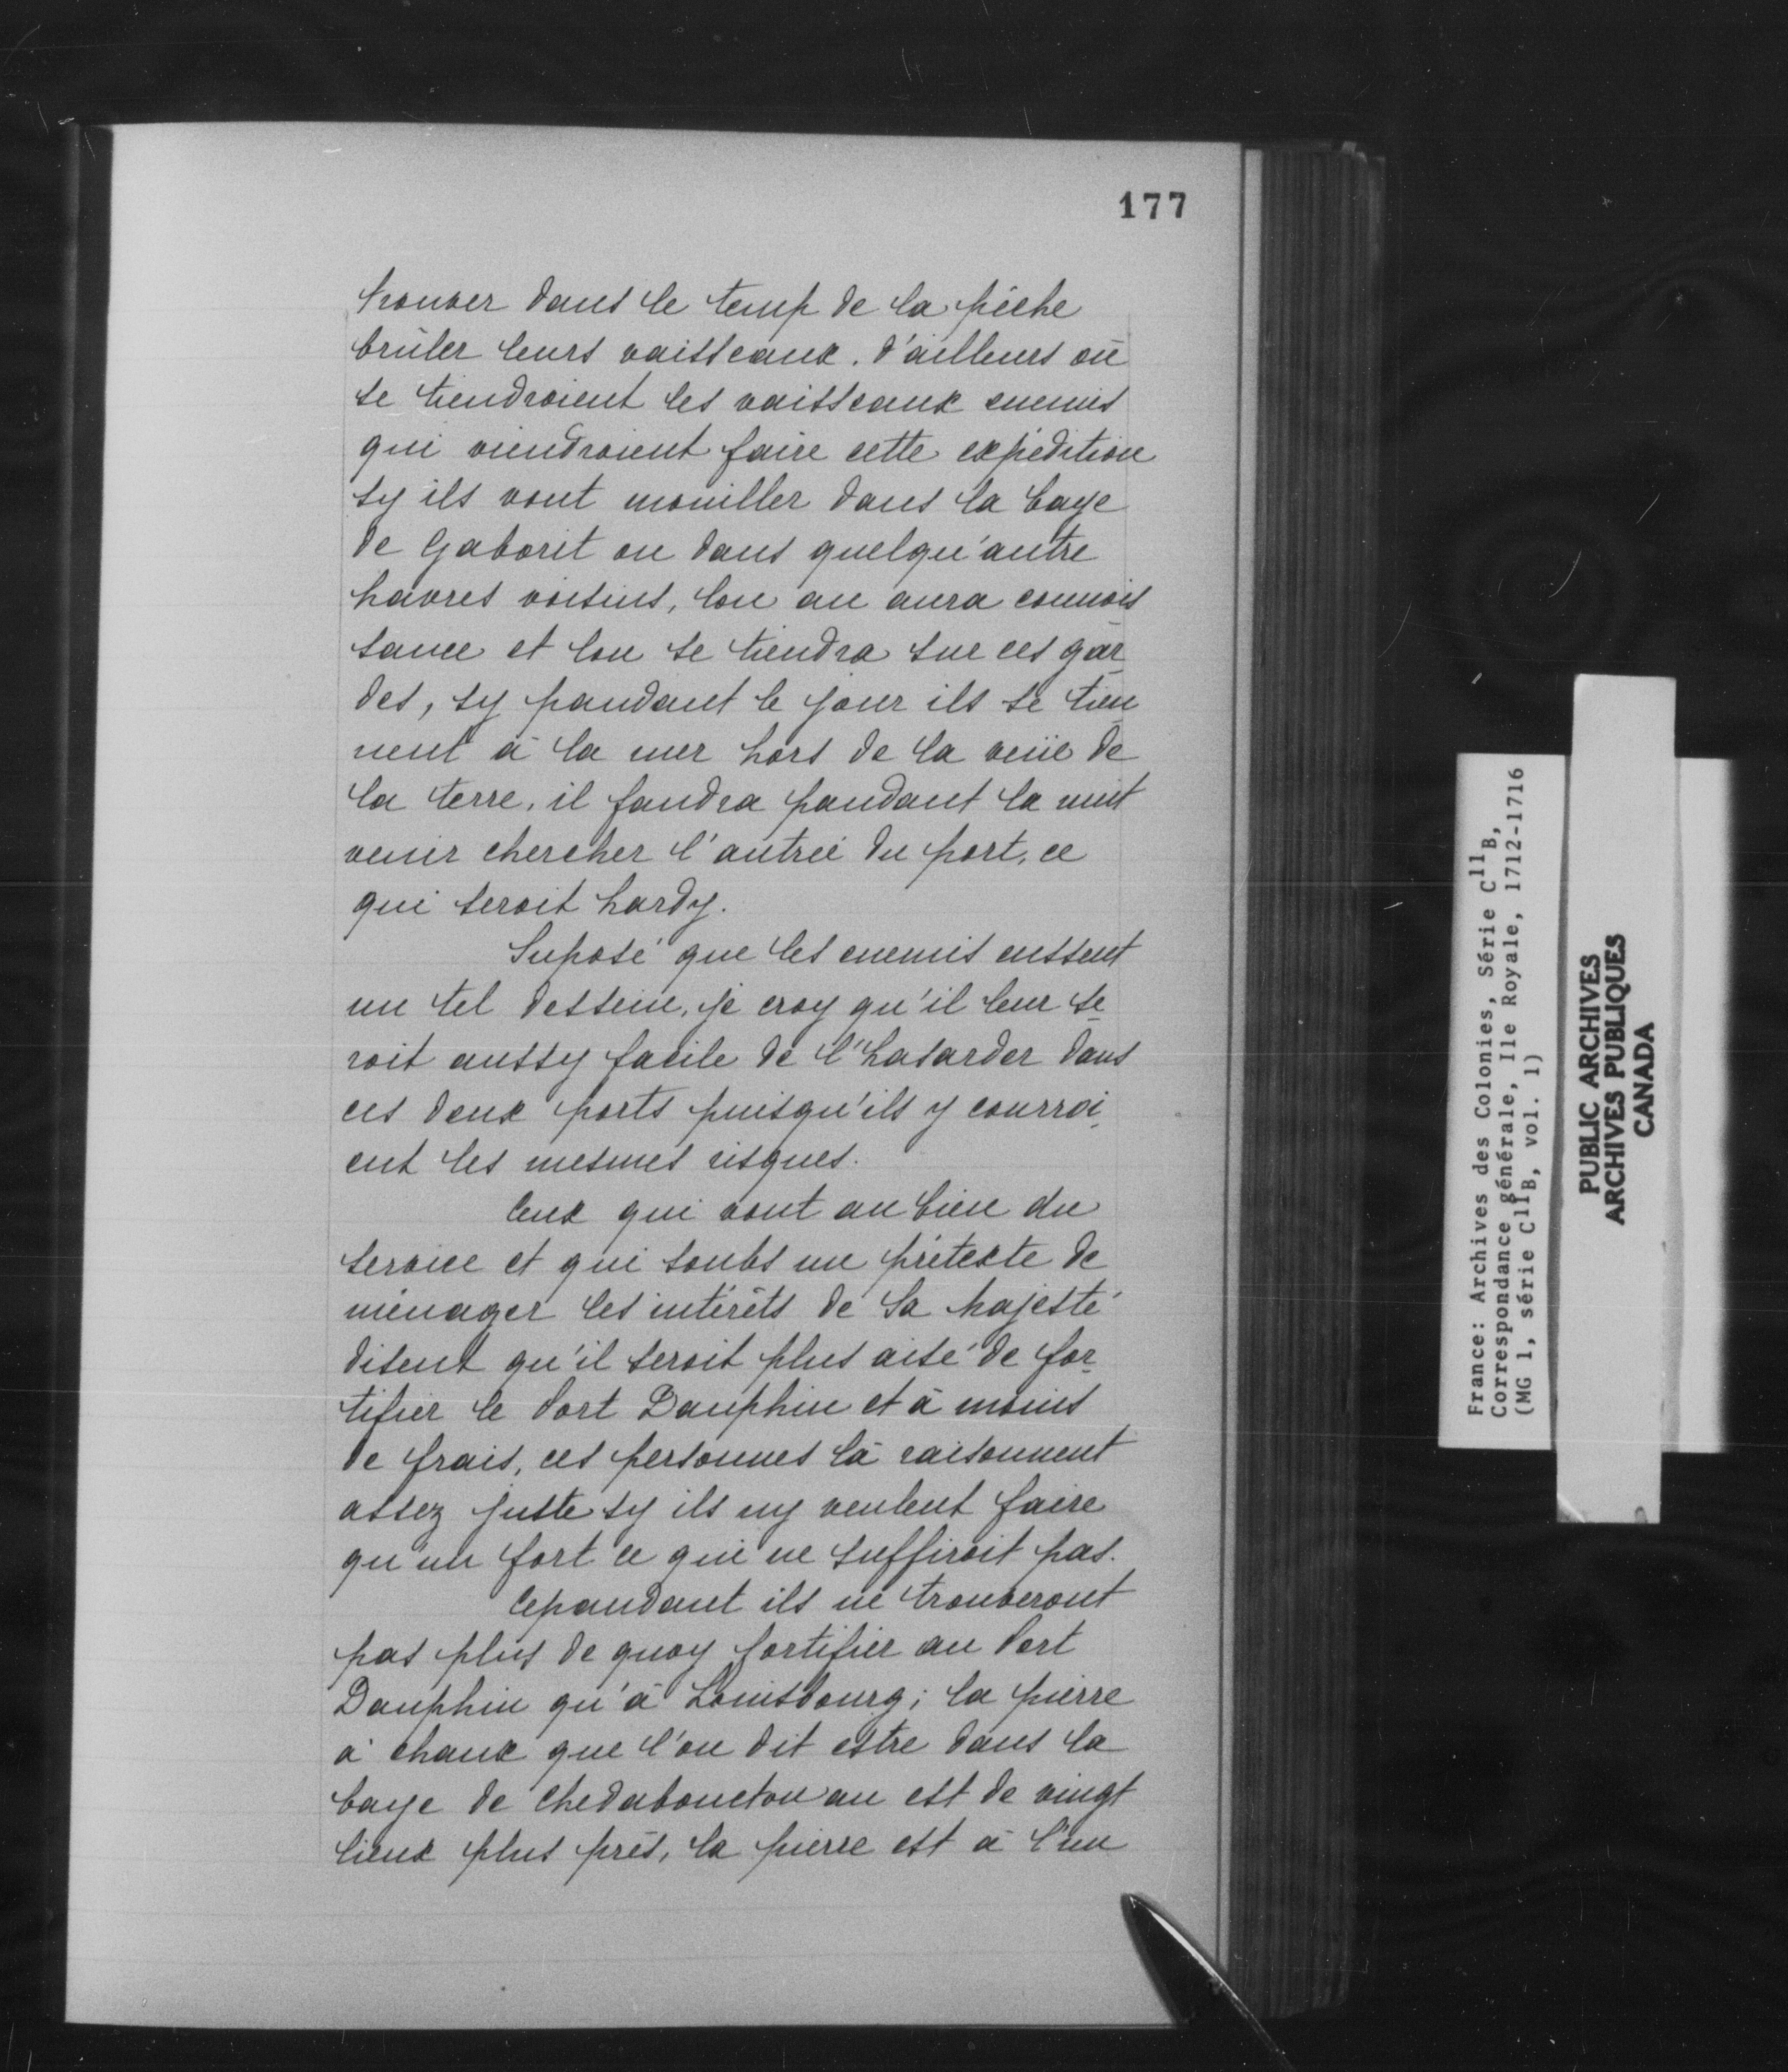 177
trouver dans le temp de la pêche
brûler leurs vaisseaux. d'ailleurs où
se tiendroient les vaisseaux enemis
qui viendroient faire cette expédition
sy ils vont mouiller dans la baye
de Gaborit ou dans quelqu'autre
havres voisins, lon an aura connois
sance et lon se tiendra sur ces gar
des, sy pandant le jour ils se tien
nent à la mer hors de la veüe de
la terre, il faudra pandant la nuit
venir chercher l'antrée du port, ce
qui seroit hardy.
Suposé que les enemis eussent
un tel dessein, je croy qu'il leur se
roit aussy facile de l'hasarder dans
ces deux ports puisqu'ils y courroi
ent les mesmes risques.
Ceux qui vont au bien du
service et qui soubs un prétexte de
ménager les intérêts de Sa Majesté
disent qu'il seroit plus aisé de for
tifier le Port Dauphin et à moins
de frais, ces personnes là raisonnent
assez juste sy ils ny veulent faire
qu'un fort ce qui ne suffiroit pas.
Cepandant ils ne trouveront
pas plus de quoy fortifier au Port
Dauphin qu'à Louisbourg; la pierre
à chaux que l'on dit estre dans la
baye de Chedabouctou an est de vingt
lieux plus près, la pierre est à l'un
France: Archives des Colonies, Série C11B,
Correspondance générale, Ile Royale, 1712-1716
(MG 1, série C11B, vol. 1)
PUBLIC ARCHIVES
ARCHIVES PUBLIQUES
CANADA